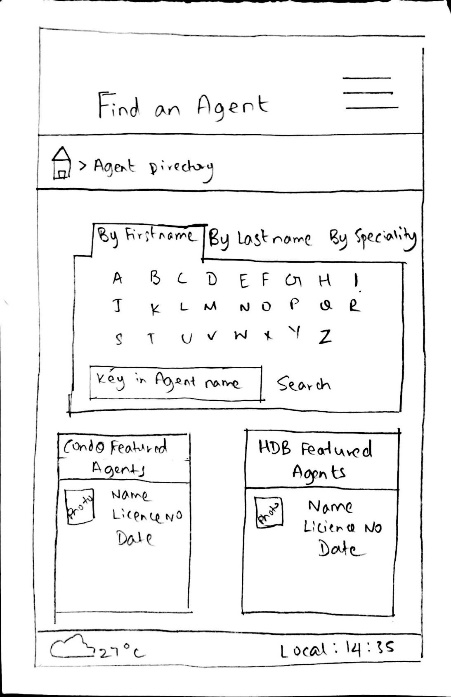 Find an Agent
> Agent Directory
By Firstname By Lastname By Speciality
A B C D E F G H I
J K L M N O P Q R
S T U V W X Y Z
Key in Agent name Search
Condo Featured
Agents
Photo
Name
Licence No
Date
HDB Featured
Agents
Photo
Name
Licience No
Date
27°C
Local: 14:35